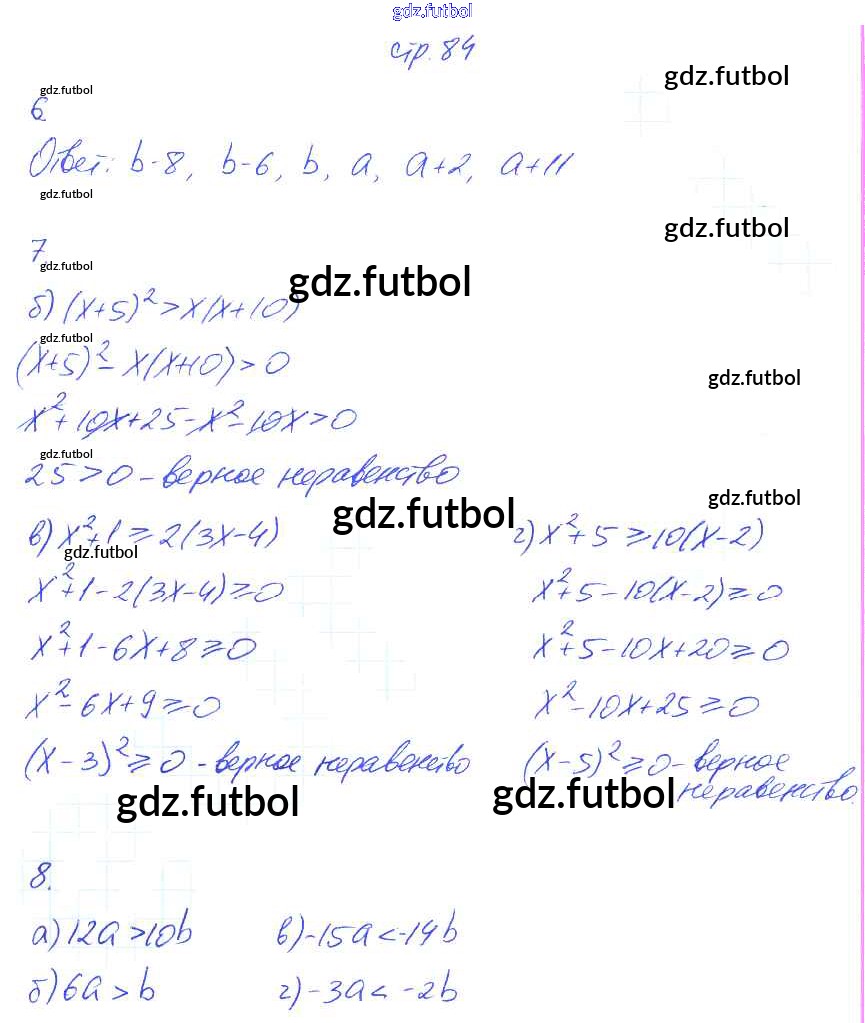 gdz.futbol
стр. 84
gdz.futbol
gdz.futbol
6
Ответ: b-8, b-6, b, a, a+2, a+11
gdz.futbol
gdz.futbol
7.
gdz.futbol
gdz.futbol
б) (x+5)²>x(x+10)
gdz.futbol
(x+5)²-x(x+10)>0
gdz.futbol
x²+10x+25-x²-10x>0
gdz.futbol
25>0-верное неравенство
gdz.futbol
gdz.futbol
в) x²+1≥2(3x-4)
г) x²+5≥10(x-2)
gdz.futbol
x²+1-2(3x-4)≥0
x²+5-10(x-2)≥0
x²+1-6x+8≥0
x²+5-10x+20≥0
x²-6x+9≥0
x²-10x+25≥0
(x-3)²≥0-верное неравенство
(x-5)²≥0-верное
неравенство.
gdz.futbol
gdz.futbol
8.
а) 12a>10b
в) -15a<-14b
б) 6a>b
г) -3a<-2b